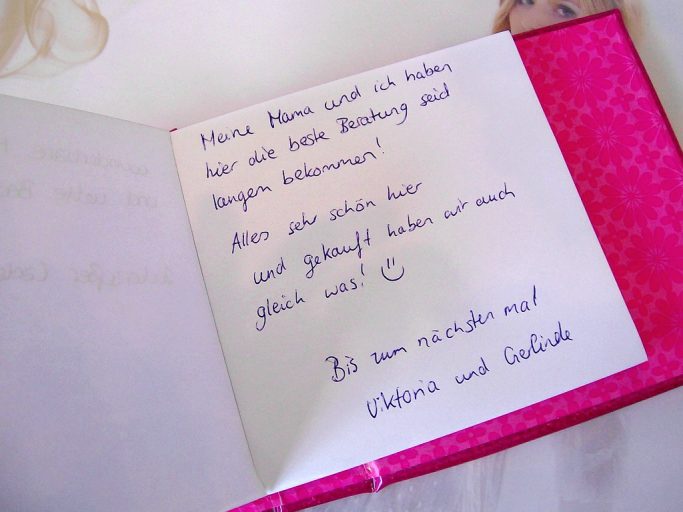 Meine Mama und ich haben
hier die beste Beratung seid
langem bekommen!
Alles sehr schön hier
und gekauft haben wir auch
gleich was!
Bis zum nächsten mal
Viktoria und Gerlinde